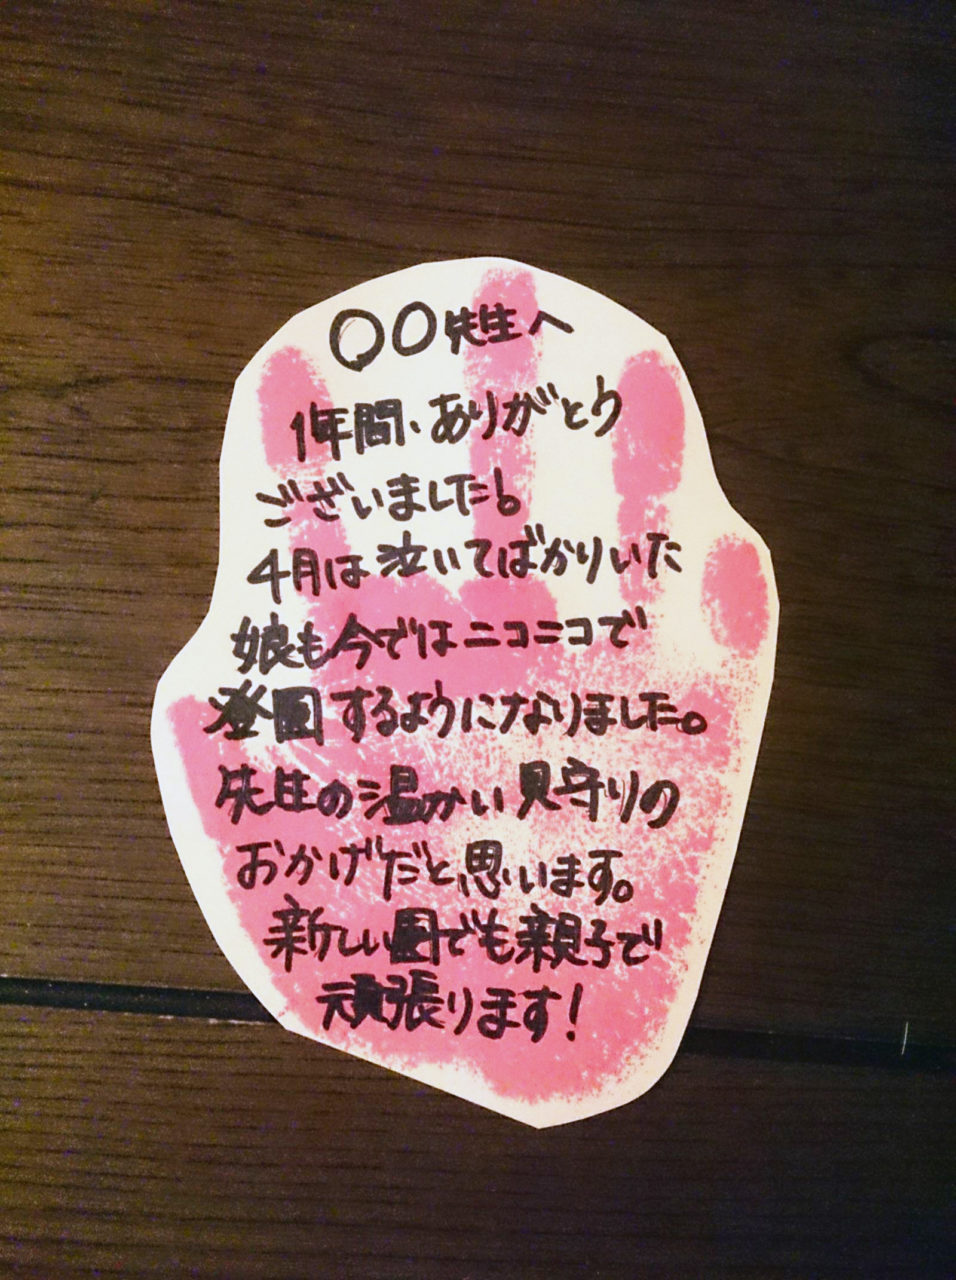 〇〇先生へ
1年間、ありがとう
ございました。
4月は泣いてばかりいた
娘も今ではニコニコで
登園するようになりました。
先生の温かい見守りの
おかげだと思います。
新しい園でも親子で
頑張ります！